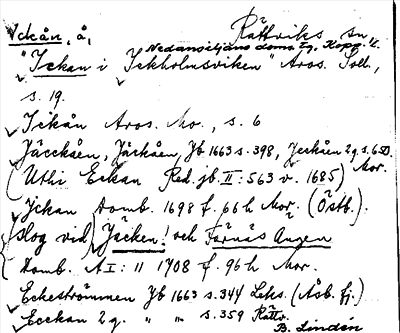 Ickån, å,
Rättviks sn
Nedansiljans doms. tg. Kopp. l.
"Ickan i Ickholmsviken" Aros. Soll.,
s. 19.
Ickån Aros. Mo., s. 6
Jäcckåen, Jäckåen, Jb 1663 s. 398, Jeckåen 2 g. s. 650. Mor.
(Uthi Eckan Red. jb. II: 563 v. 1685)
Yckan Domb. 1698 f. 66 h Mor. (Östb.).
slog vid Jäcken! och Färnäs Ängen
Domb. A I: 11 1708 f. 96 h. Mor.
Eckeströmmen Jb 1663 s. 344 Leks. (Åsb. fj.)
Ecckan 2 g. " " s. 359 Rättv.
B. Lindén